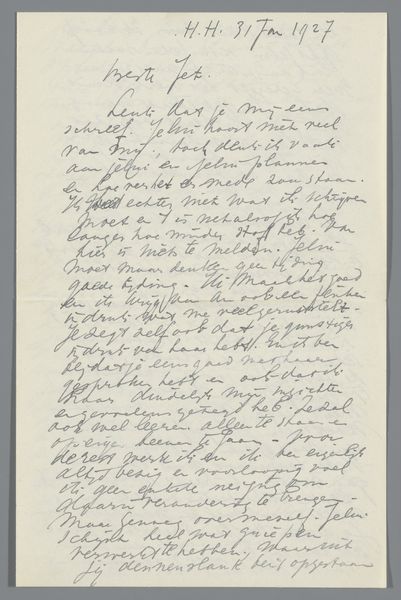 H.H. 31 Jan 1927
Beste Jet.
Leuk dat je mij eens
schreef. Jelui hoort niet veel
van mij, toch denk ik vaak
aan jelui en jelui plannen
en hoe verder de mede zou staan.
Ik weet echter niet wat ik schrijven
moet en 't is net alsof ik hoe
langer hoe minder stof heb. Van
hier is niets te melden. Jelui
moet maar denken geen tijding
goede tijding. Wij maak het goed
en ik kreeg van An ook een flinken
indruk wat me veel geruststelt.
Je zegt zelf ook dat je gunstige
indruk van haar hebt. En ik ben
blij dat je eens goed met haar
gesproken hebt en ook dat ik
haar duidelijk mijn inzichten
en gevoelens gezegd heb. Ze zal
ook wel leeren alleen te staan en
op eigen beenen te gaan. Voor
de rest werk ik en ik ben eigenlijk
altijd bezig en voorloopig voel
ik geen enkele neiging om
daarin verandering te brengen.
Maar genoeg over mezelf. Jelui
schijnt heel wat griepen
verwerkt te hebben, waaruit
jij dennenslank bent opgestaan